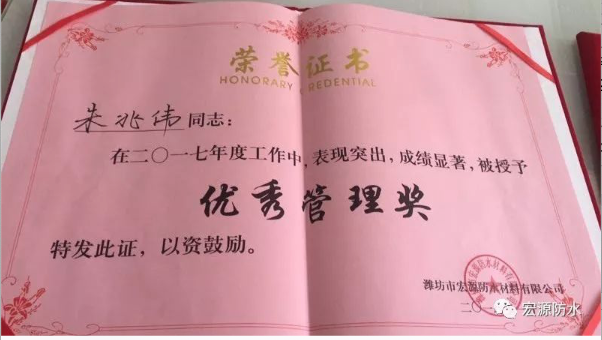 荣誉证书
HONORARY CREDENTIAL
朱兆伟同志：
在二〇一七年度工作中，表现突出，成绩显著，被授予
优秀管理奖
特发此证，以资鼓励。
潍坊市宏源防水材料有限公司
二〇
宏源防水